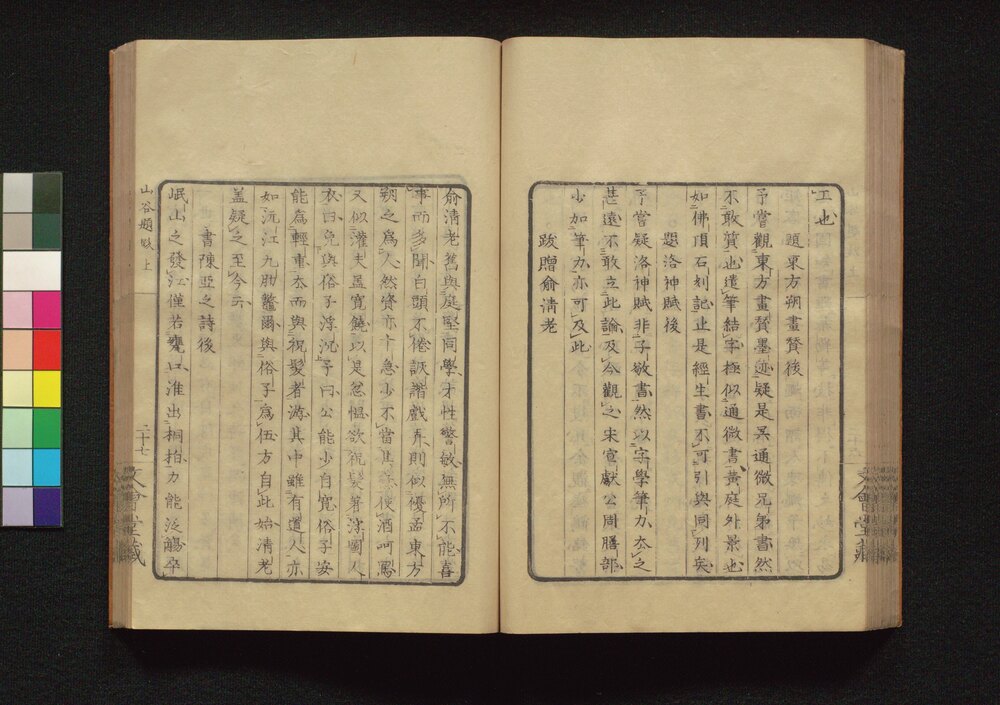 工也
題東方朔畫賛後
予嘗觀東方畫賛墨迹疑是吴通微兄弟書然
不敢質也遣筆結字極似通微書黄庭外景也
如佛頂石刻記止是經生書不可引與同列矣
題洛神賦後
予嘗疑洛神賦非子敬書然以字學筆力去之
甚遠不敢立此論及今觀之宋宣獻公周膳部
少加筆力亦可及此
跋贈俞清老
俞清老舊與庭堅同學才性警敏無所不能喜
事而多聞白頭不倦詼諧戲弄則似優孟東方
朔之為人然資亦卞急少不當其意使酒呵罵
又似灌夫盖寬饒以是忿愠欲祝髮著浮圖人
衣曰免與俗子浮沉予曰公能少自寬俗子安
能為輕重去而與祝髮者游其中雖有道人亦
如沅江九肋鼈爾與俗子為伍方自此始清老
盖疑之至今云
書陳亞之詩後
岷山之發江僅若甕口淮出桐栢力能泛觴卒
山谷題跋上
二十七
文會堂藏
文會堂藏